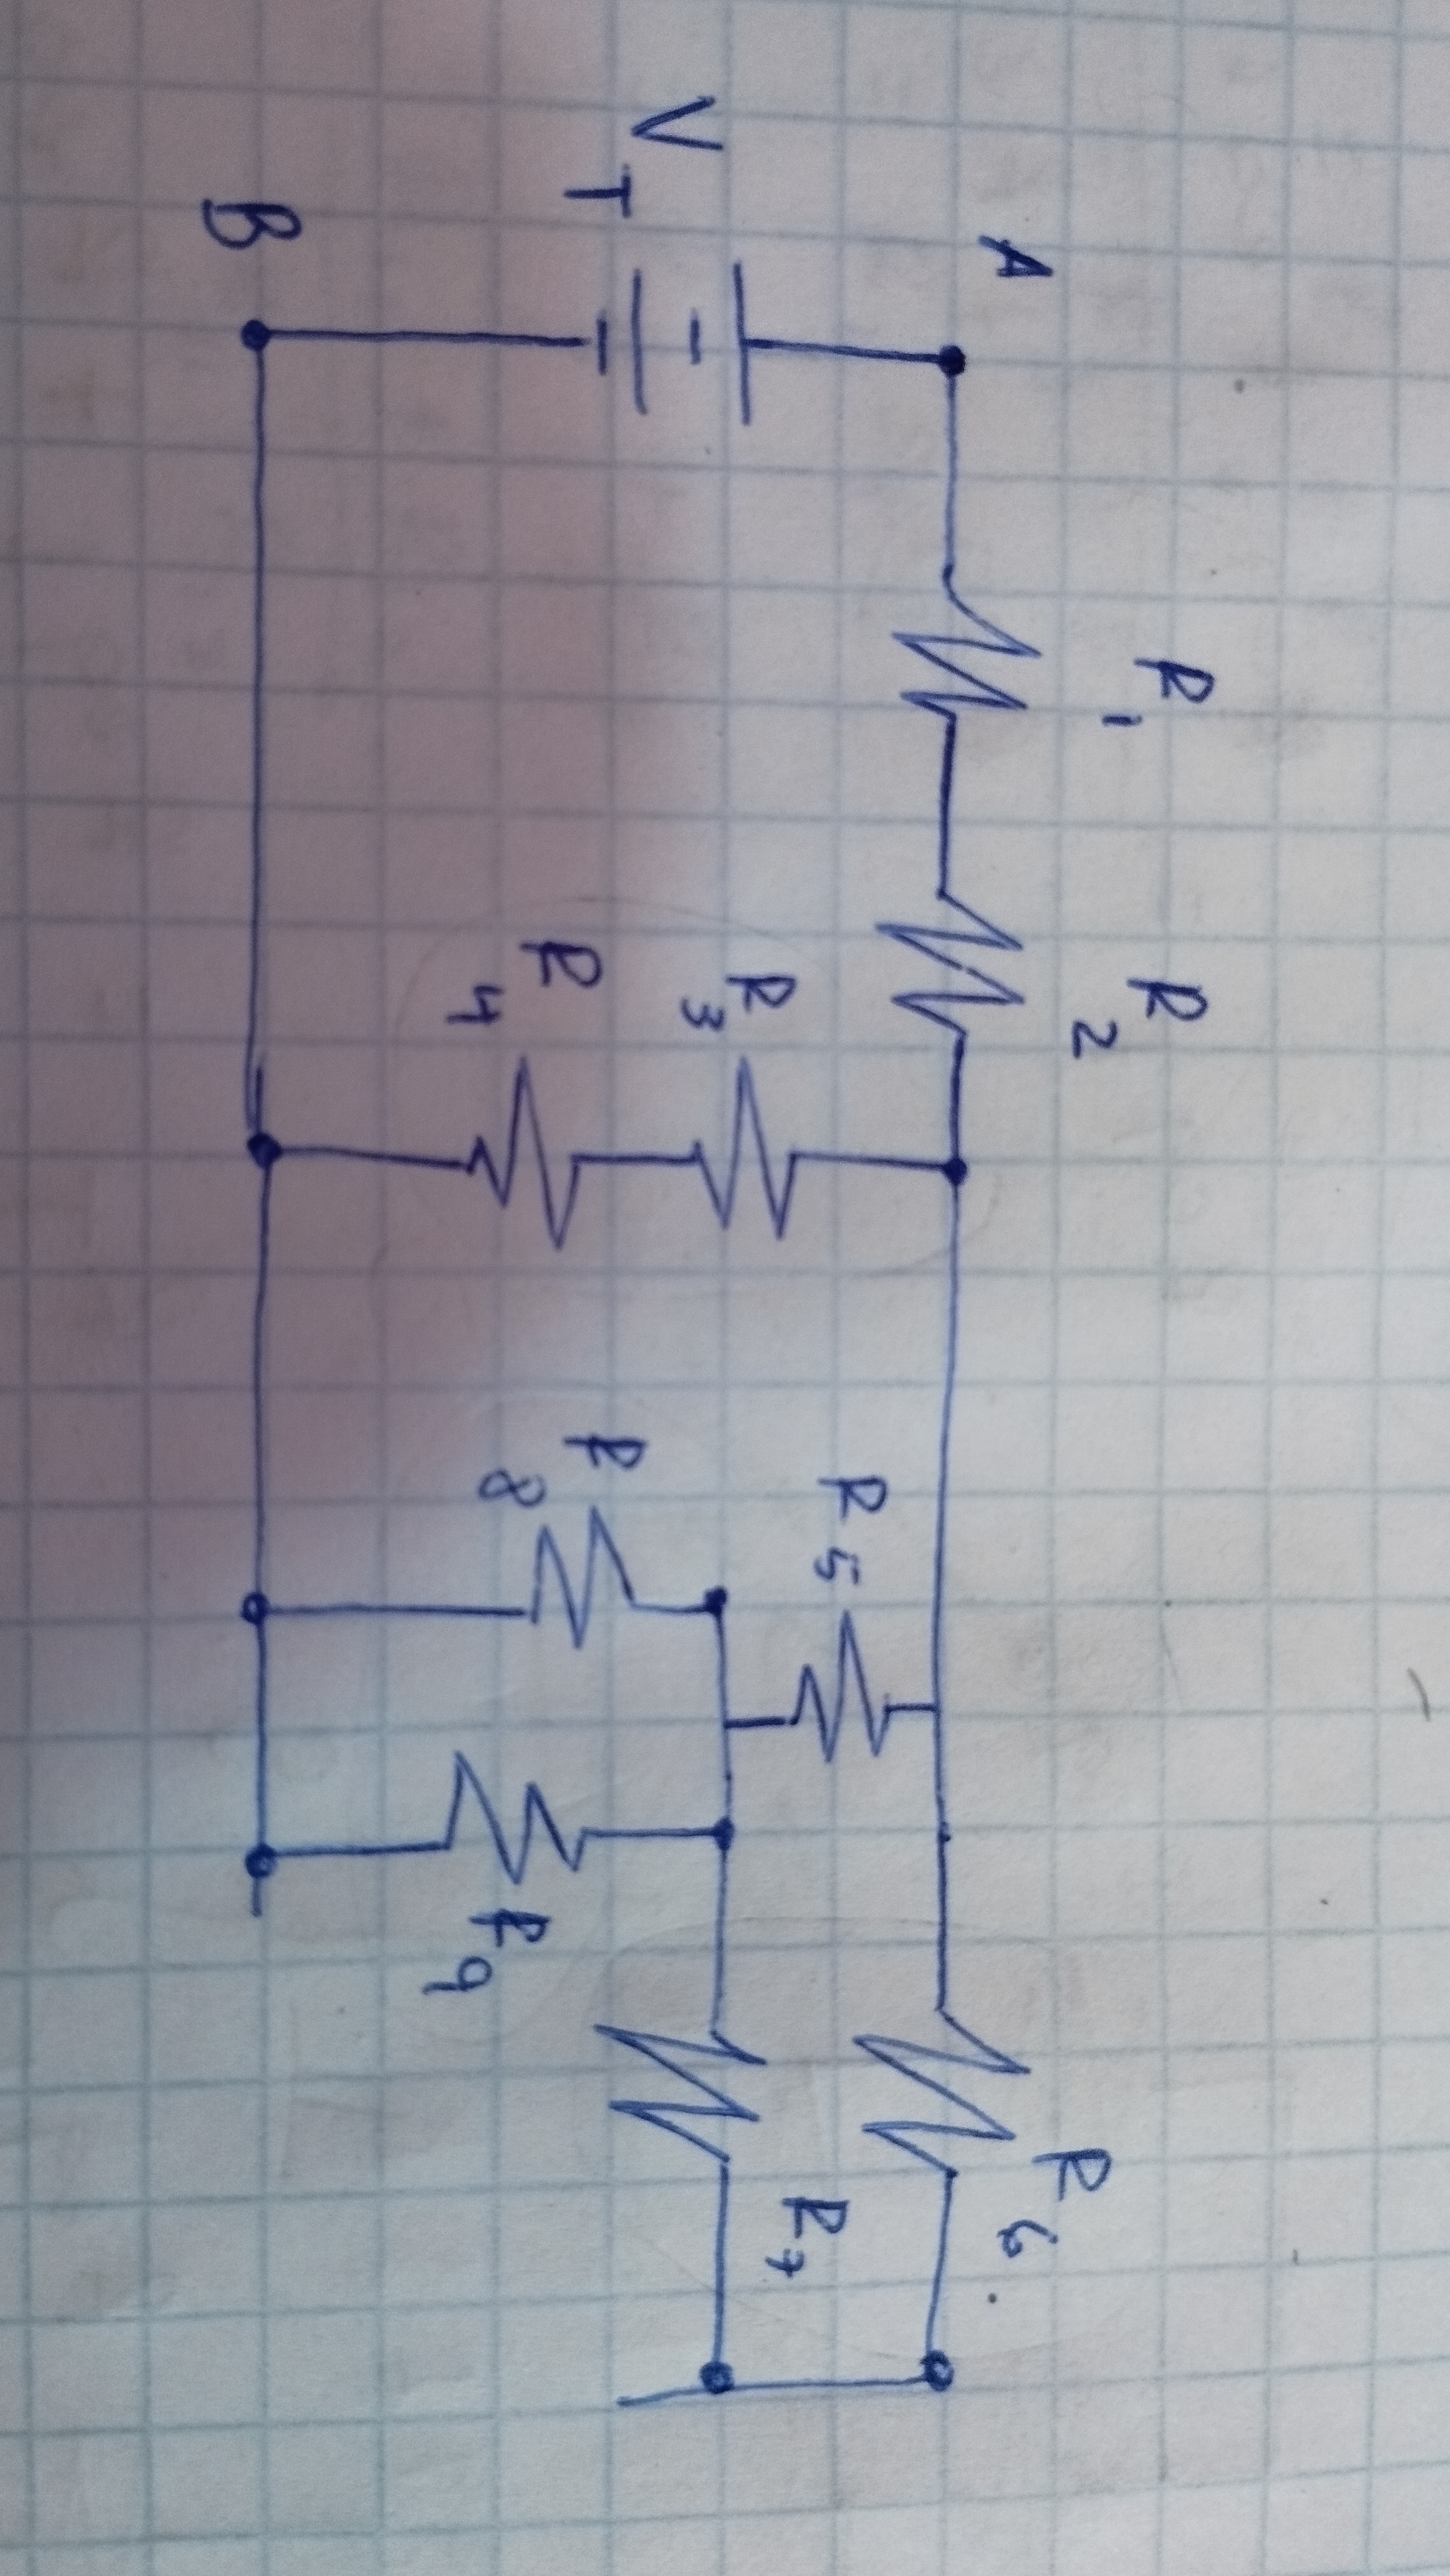 R1
R2
R6
A
R5
R7
R3
VT
R8
R4
R9
B